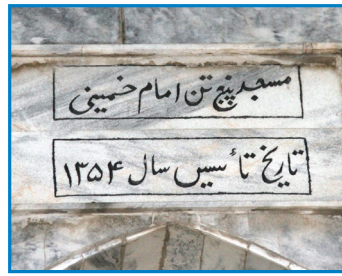 مسجد پنج تن امام خمینی
تاریخ تأسیس سال ۱۳۵۴